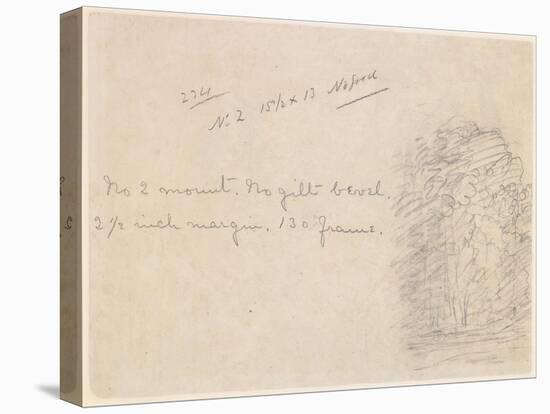 234
No 2 15 1/2 x 13 No Good
No 2 mount. No gilt bevel.
2 1/2 inch margin. 130 frame.